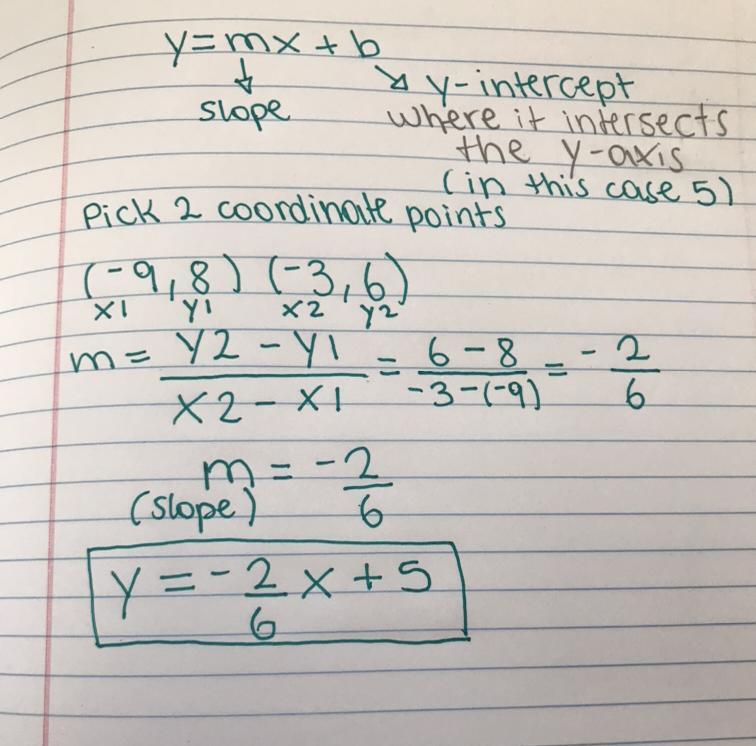 y=mx+b
↓ ↘ y-intercept
slope where it intersects
the y-axis
(in this case 5)
Pick 2 coordinate points
(-9,8) (-3,6)
x1 y1 x2 y2
m = y2 - y1 / x2 - x1 = 6 - 8 / -3-(-9) = - 2/6
m = - 2/6
(slope)
y = - 2/6 x + 5